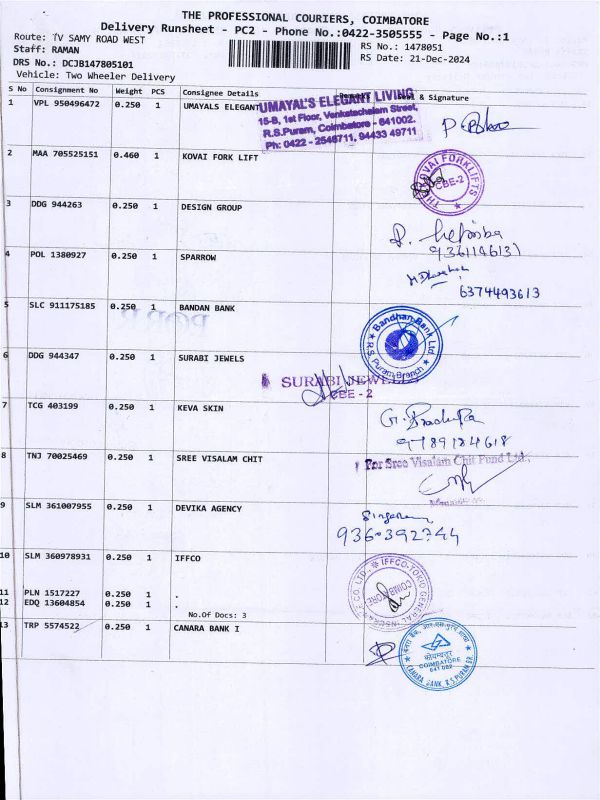 THE PROFESSIONAL COURIERS, COIMBATORE
Delivery Runsheet - PC2 - Phone No.:0422-3505555 - Page No.:1
Route: TV SAMY ROAD WEST
RS No.: 1478051
Staff: RAMAN
RS Date: 21-Dec-2024
DRS No.: DCJB147805101
Vehicle: Two Wheeler Delivery
S No Consignment No Weight PCS Consignee Details & Signature
1 VPL 950496472 0.250 1 UMAYALS ELEGANT
UMAYAL'S ELEGANT LIVING
15-B, 1st Floor, Venkatachalam Street,
R.S.Puram, Coimbatore - 641002.
Ph: 0422 - 2546711, 94433 49711
2 MAA 705525151 0.460 1 KOVAI FORK LIFT
THE KOVAI FORKLIFTS
CBE-2
3 DDG 944263 0.250 1 DESIGN GROUP
9361146131
4 POL 1380927 0.250 1 SPARROW
6374493613
5 SLC 911175185 0.250 1 BANDAN BANK
Bandhan Bank Ltd.
R.S. Puram Branch
6 DDG 944347 0.250 1 SURABI JEWELS
SURABI JEWELS
CBE - 2
7 TCG 403199 0.250 1 KEVA SKIN
9789124618
8 TNJ 70025469 0.250 1 SREE VISALAM CHIT
For Sree Visalam Chit Fund Ltd.,
9 SLM 361007955 0.250 1 DEVIKA AGENCY
9360392744
10 SLM 360978931 0.250 1 IFFCO
IFFCO-TOKIO GENERAL INSURANCE CO LTD.,
COIMBATORE
11 PLN 1517227 0.250 1 .
12 EDQ 13604854 0.250 1 .
No.Of Docs: 3
13 TRP 5574522 0.250 1 CANARA BANK I
कोयम्बत्तूर
COIMBATORE
641 002
CANARA BANK, R.S.PURAM